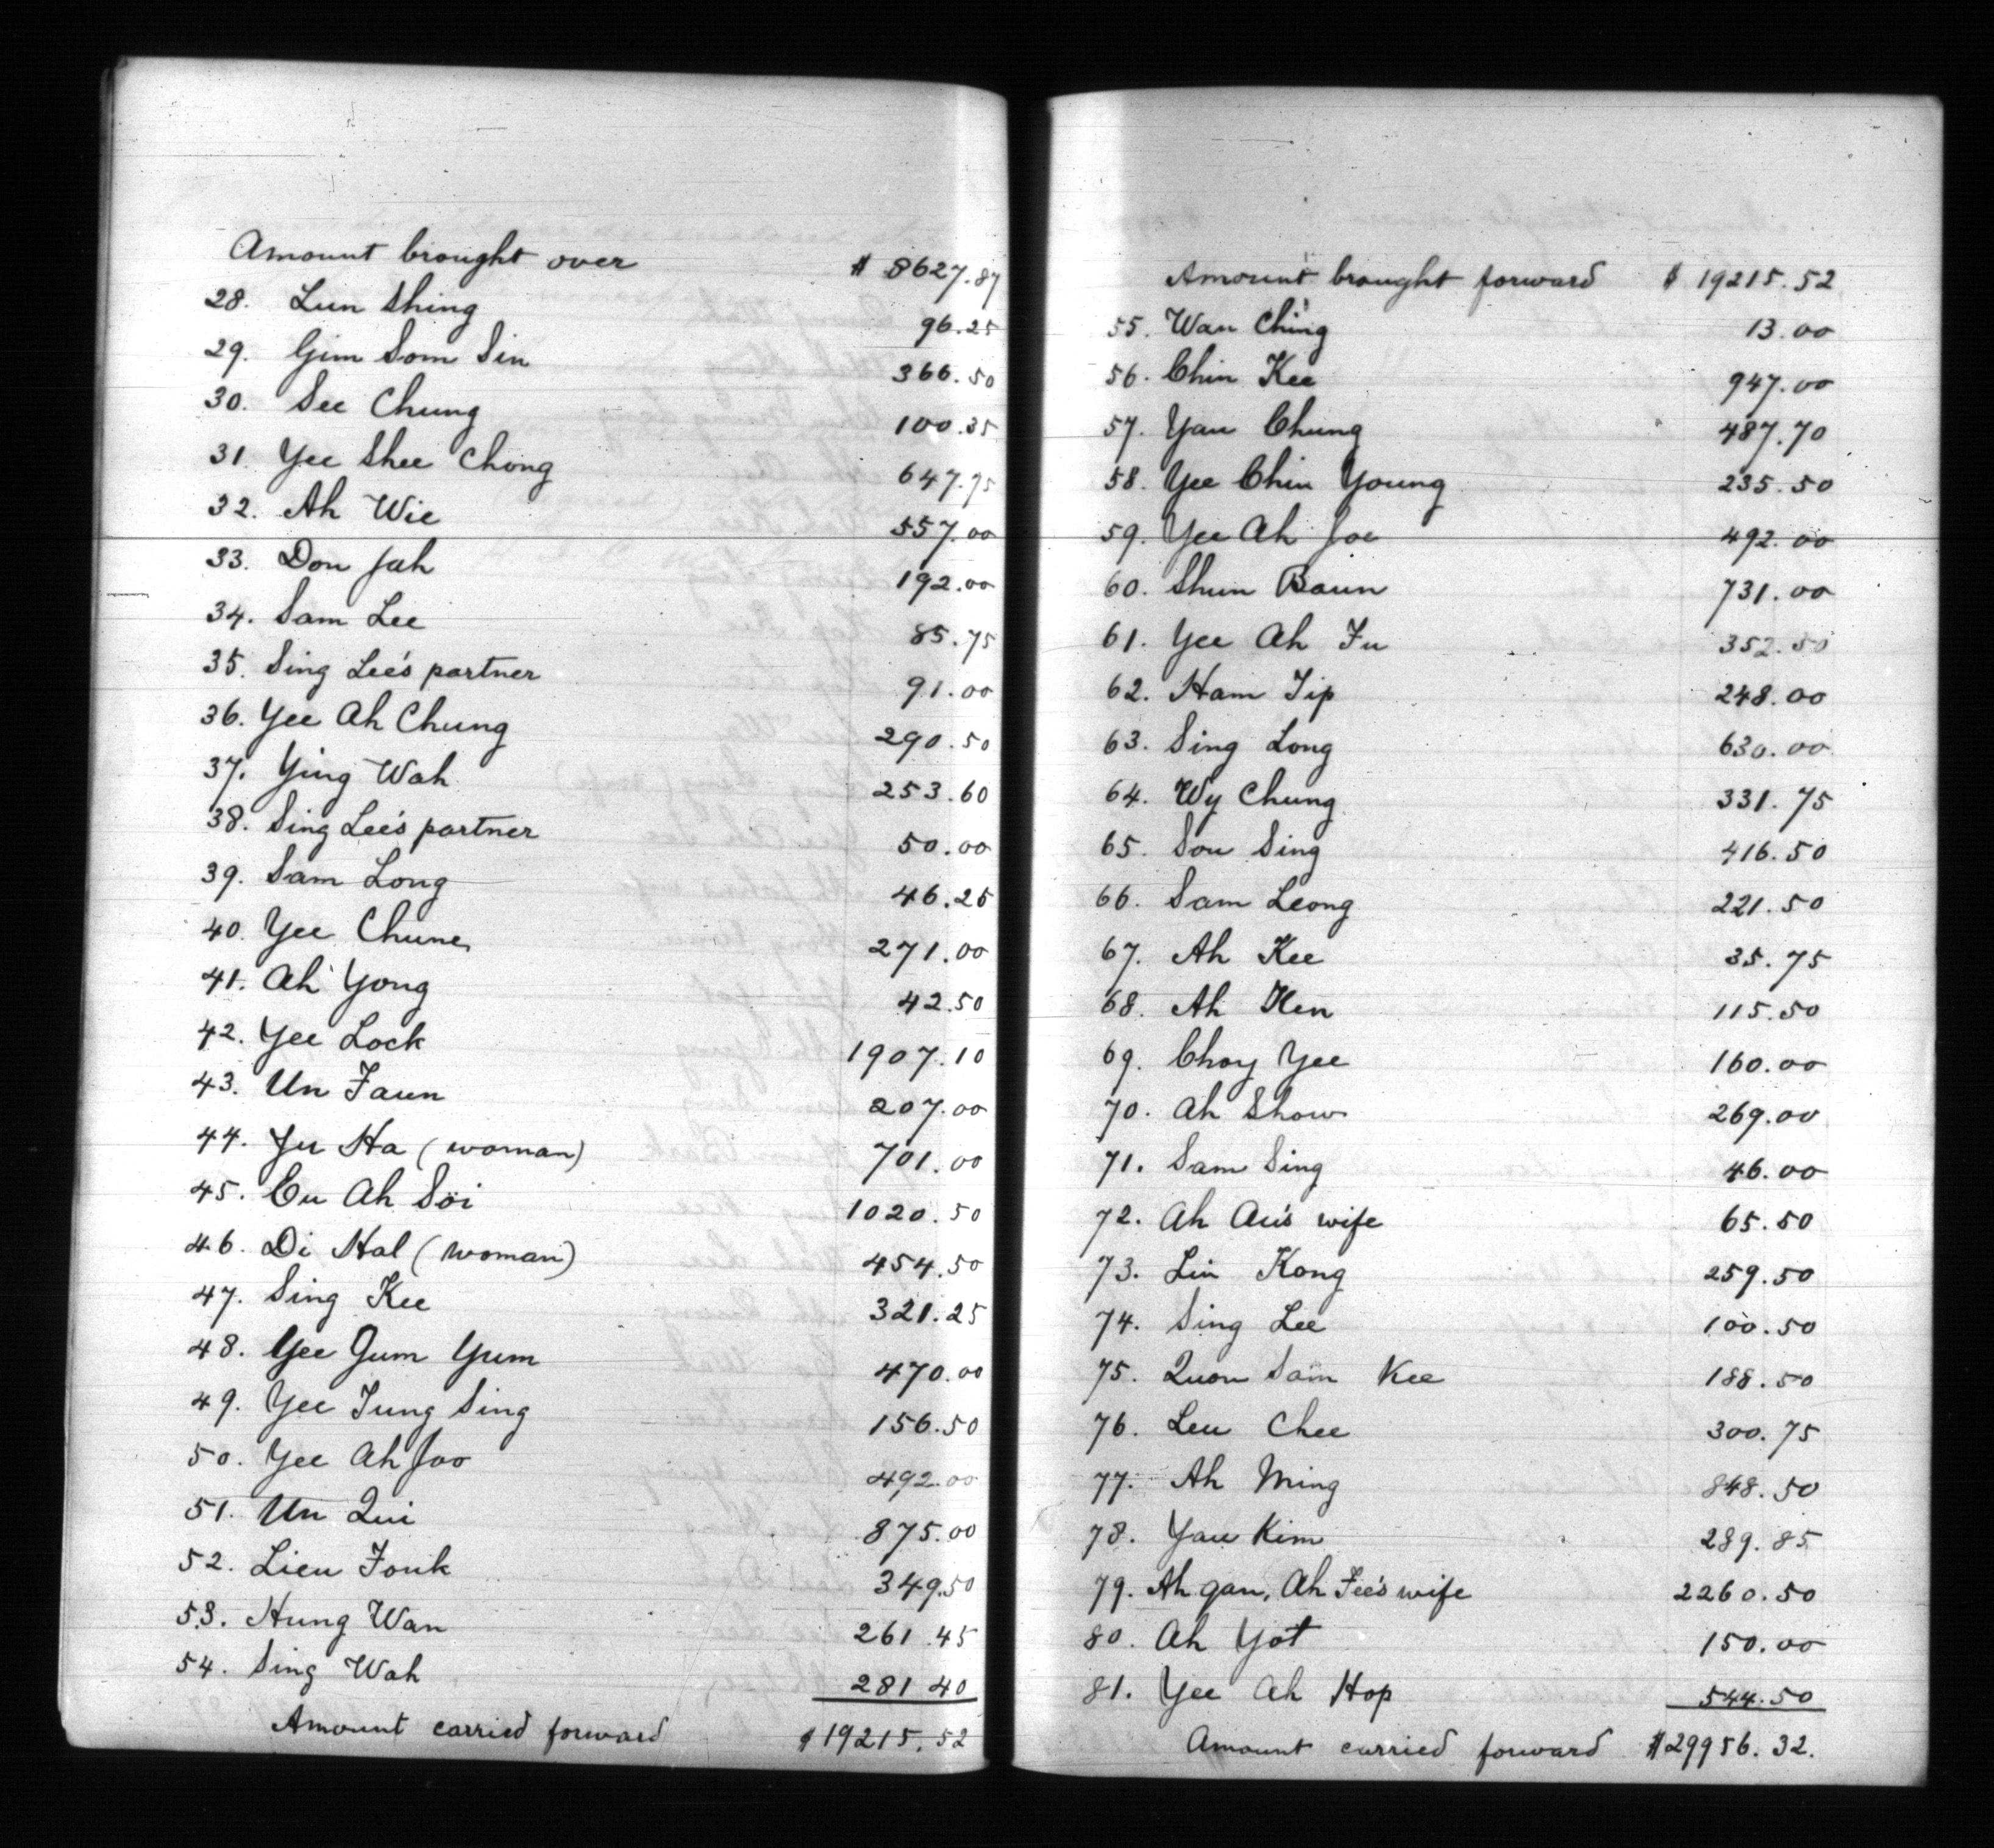 Amount brought over $ 8627.87
28. Lun Shing 96.25
29. Gim Som Sin 366.50
30. See Chung 100.35
31. Yee Shee Chong 647.75
32. Ah Wie 557.00
33. Don Jah 192.00
34. Sam Lee 85.75
35. Sing Lee's partner 91.00
36. Yee Ah Chung 290.50
37. Ying Wah 253.60
38. Sing Lee's partner 50.00
39. Sam Long 46.25
40. Yee Chune 271.00
41. Ah Yong 42.50
42. Yee Lock 1907.10
43. Un Faun 207.00
44. Ju Ha (woman) 701.00
45. Cu Ah Soi 1020.50
46. Di Hal (woman) 454.50
47. Sing Kee 321.25
48. Yee Gum Yum 470.00
49. Yee Jung Sing 156.50
50. Yee Ah Joo 492.00
51. Un Qui 875.00
52. Lieu Fouk 349.50
53. Hung Wan 261.45
54. Sing Wah 281.40
Amount carried forward $19215.52
Amount brought forward $ 19215.52
55. Wan Ching 13.00
56. Chin Kee 947.00
57. Yau Chung 487.70
58. Yee Chin Young 235.50
59. Yee Ah Joe 492.00
60. Shun Baun 731.00
61. Yee Ah Fu 352.50
62. Ham Jip 248.00
63. Sing Long 630.00
64. Wy Chung 331.75
65. Sou Sing 416.50
66. Sam Leong 221.50
67. Ah Kee 35.75
68. Ah Hen 115.50
69. Choy Yee 160.00
70. Ah Show 269.00
71. Sam Sing 46.00
72. Ah Au's wife 65.50
73. Lin Kong 259.50
74. Sing Lee 100.50
75. Quon Sam Kee 188.50
76. Leu Chee 300.75
77. Ah Ming 848.50
78. Yau Kim 289.85
79. Ah gan, Ah Fee's wife 2260.50
80. Ah Yot 150.00
81. Yee Ah Hop 544.50
Amount carried forward $29956.32.